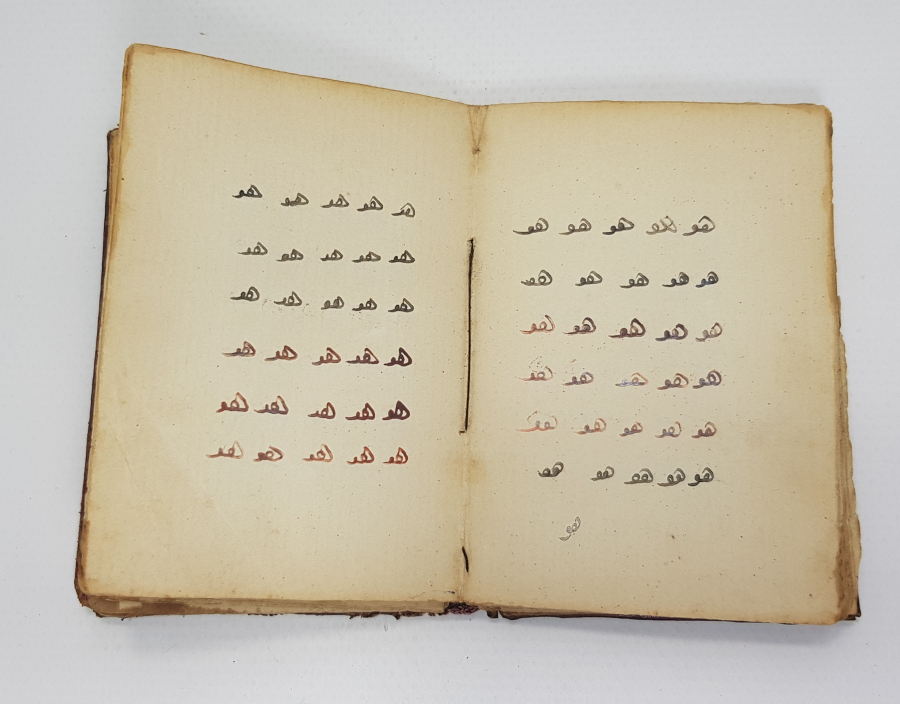 هو هو هو هو هو
هو هو هو هو هو
هو هو هو هو هو
هو هو هو هو هو
هو هو هو هو هو
هو هو هو هو هو
هو
هو هو هو هو هو
هو هو هو هو هو
هو هو هو هو هو
هو هو هو هو هو
هو هو هو هو هو
هو هو هو هو هو